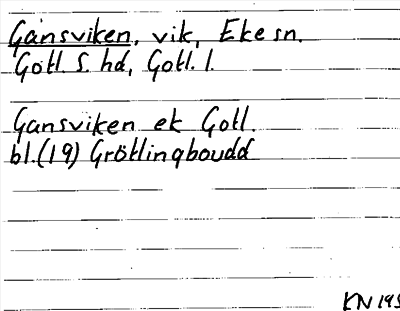 Gansviken, vik, Eke sn.
Gotl. S. hd, Gotl. l.
Gansviken ek Gotl.
bl.(19) Grötlingboudd
KN 195